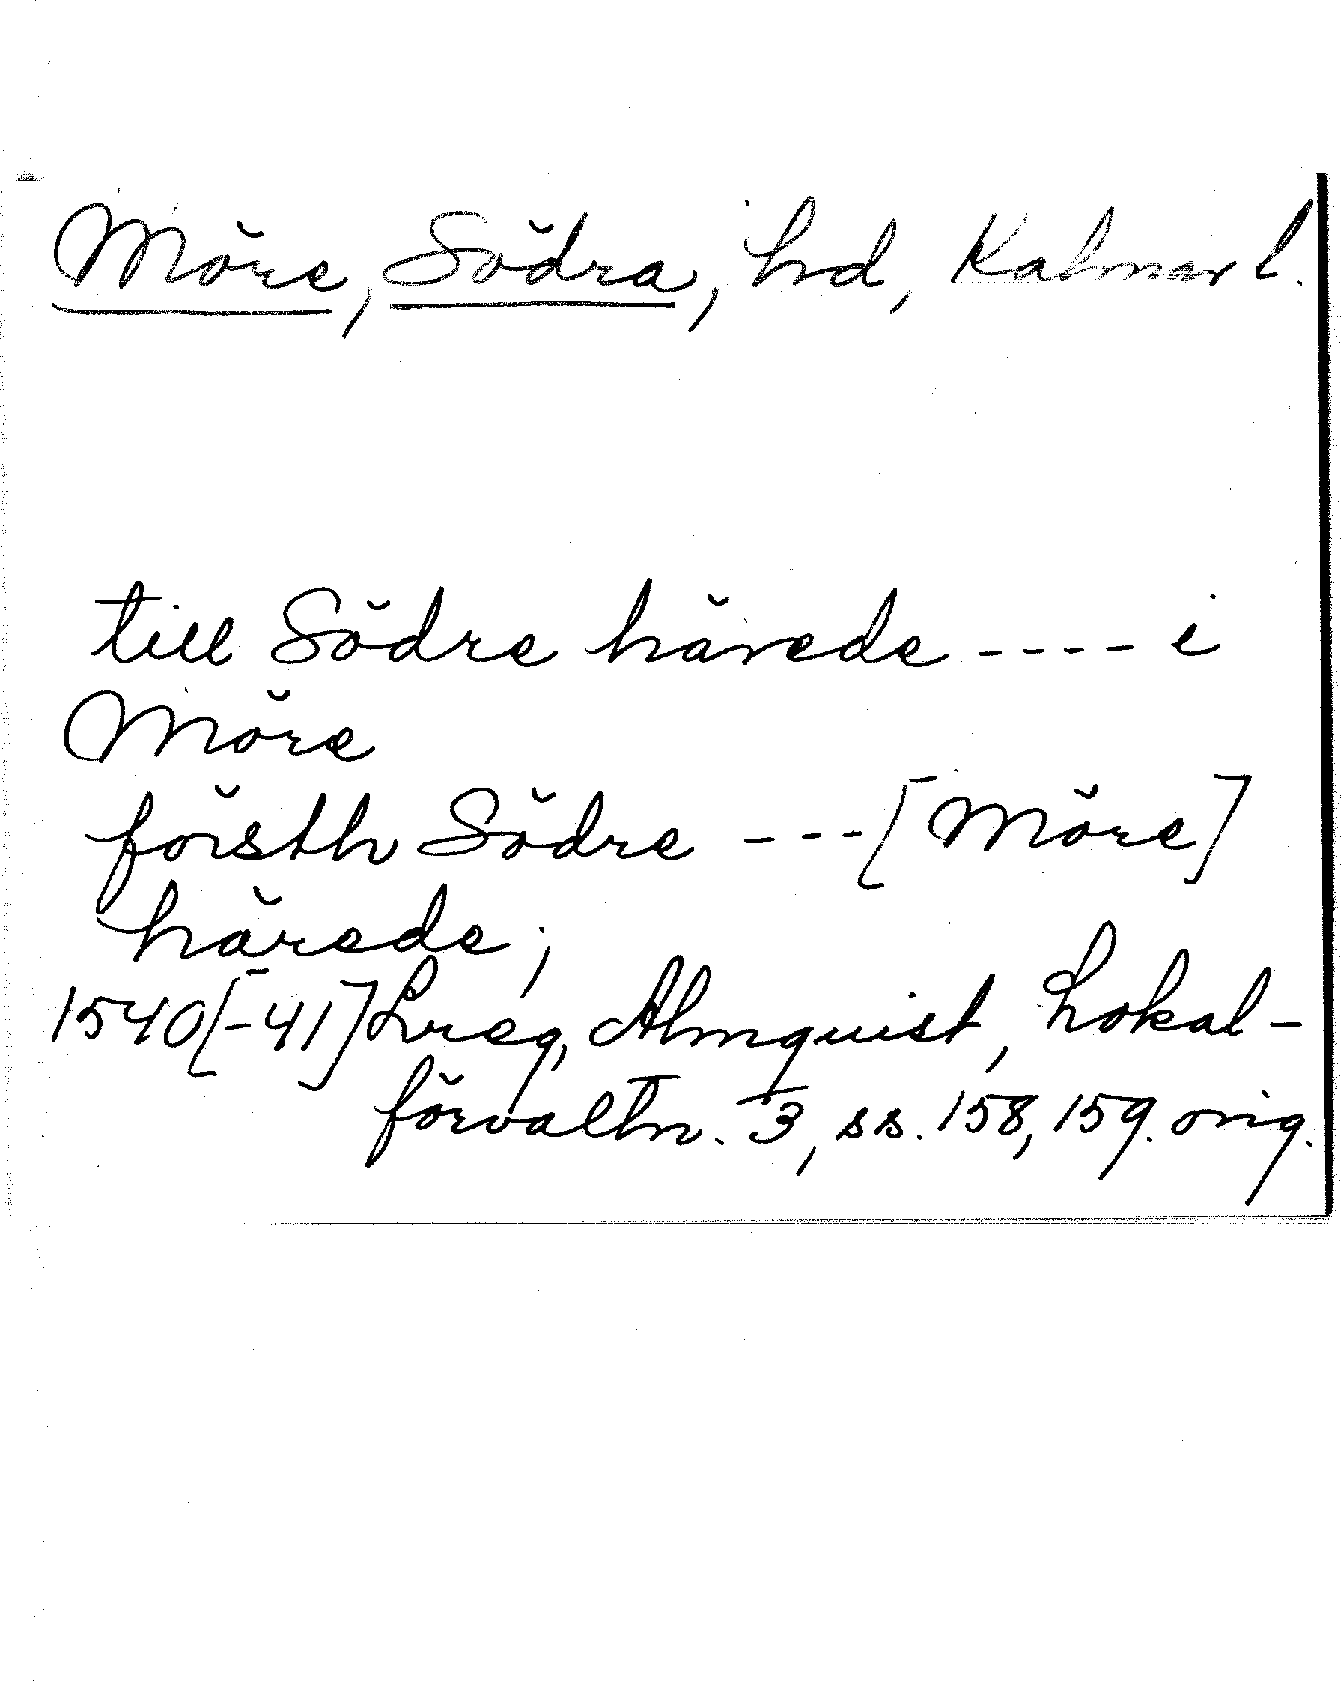 Möre, Södra, hd, Kalmar l.
till Södre härede ---- i
Möre
församl Södre --- [Möre]
härede;
1540[-41] Lreg, Almquist, Lokal-
förvaltn. 3, ss. 158, 159. orig.